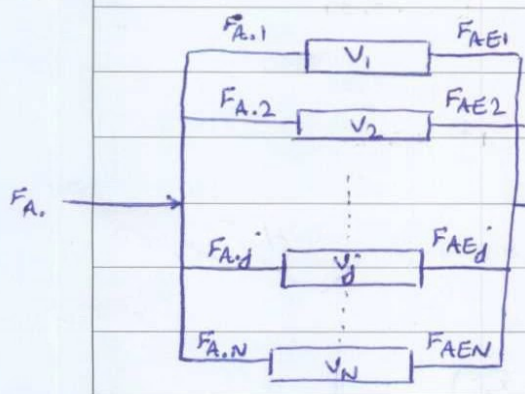 F_A.1 V_1 F_AE1
F_A.2 V_2 F_AE2
F_A.
F_A.j V_j F_AEj
F_A.N V_N F_AEN